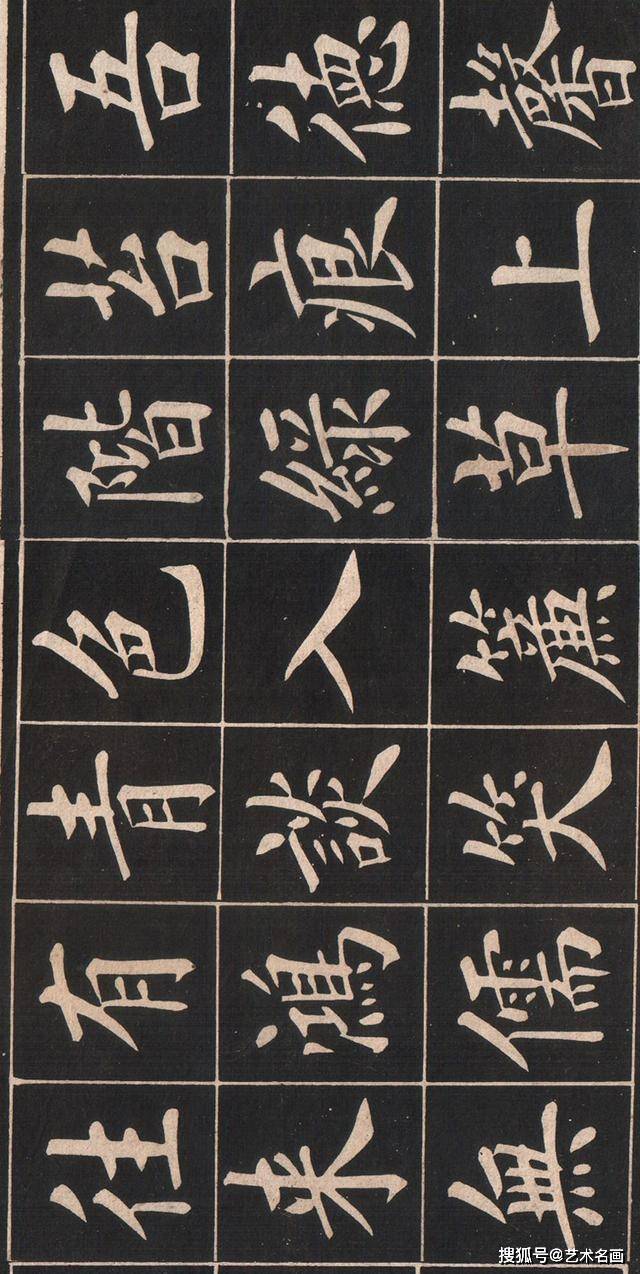 吾德馨
苔痕上
階綠草
色入簾
青談笑
有鴻儒
往来無
搜狐号@艺术名画